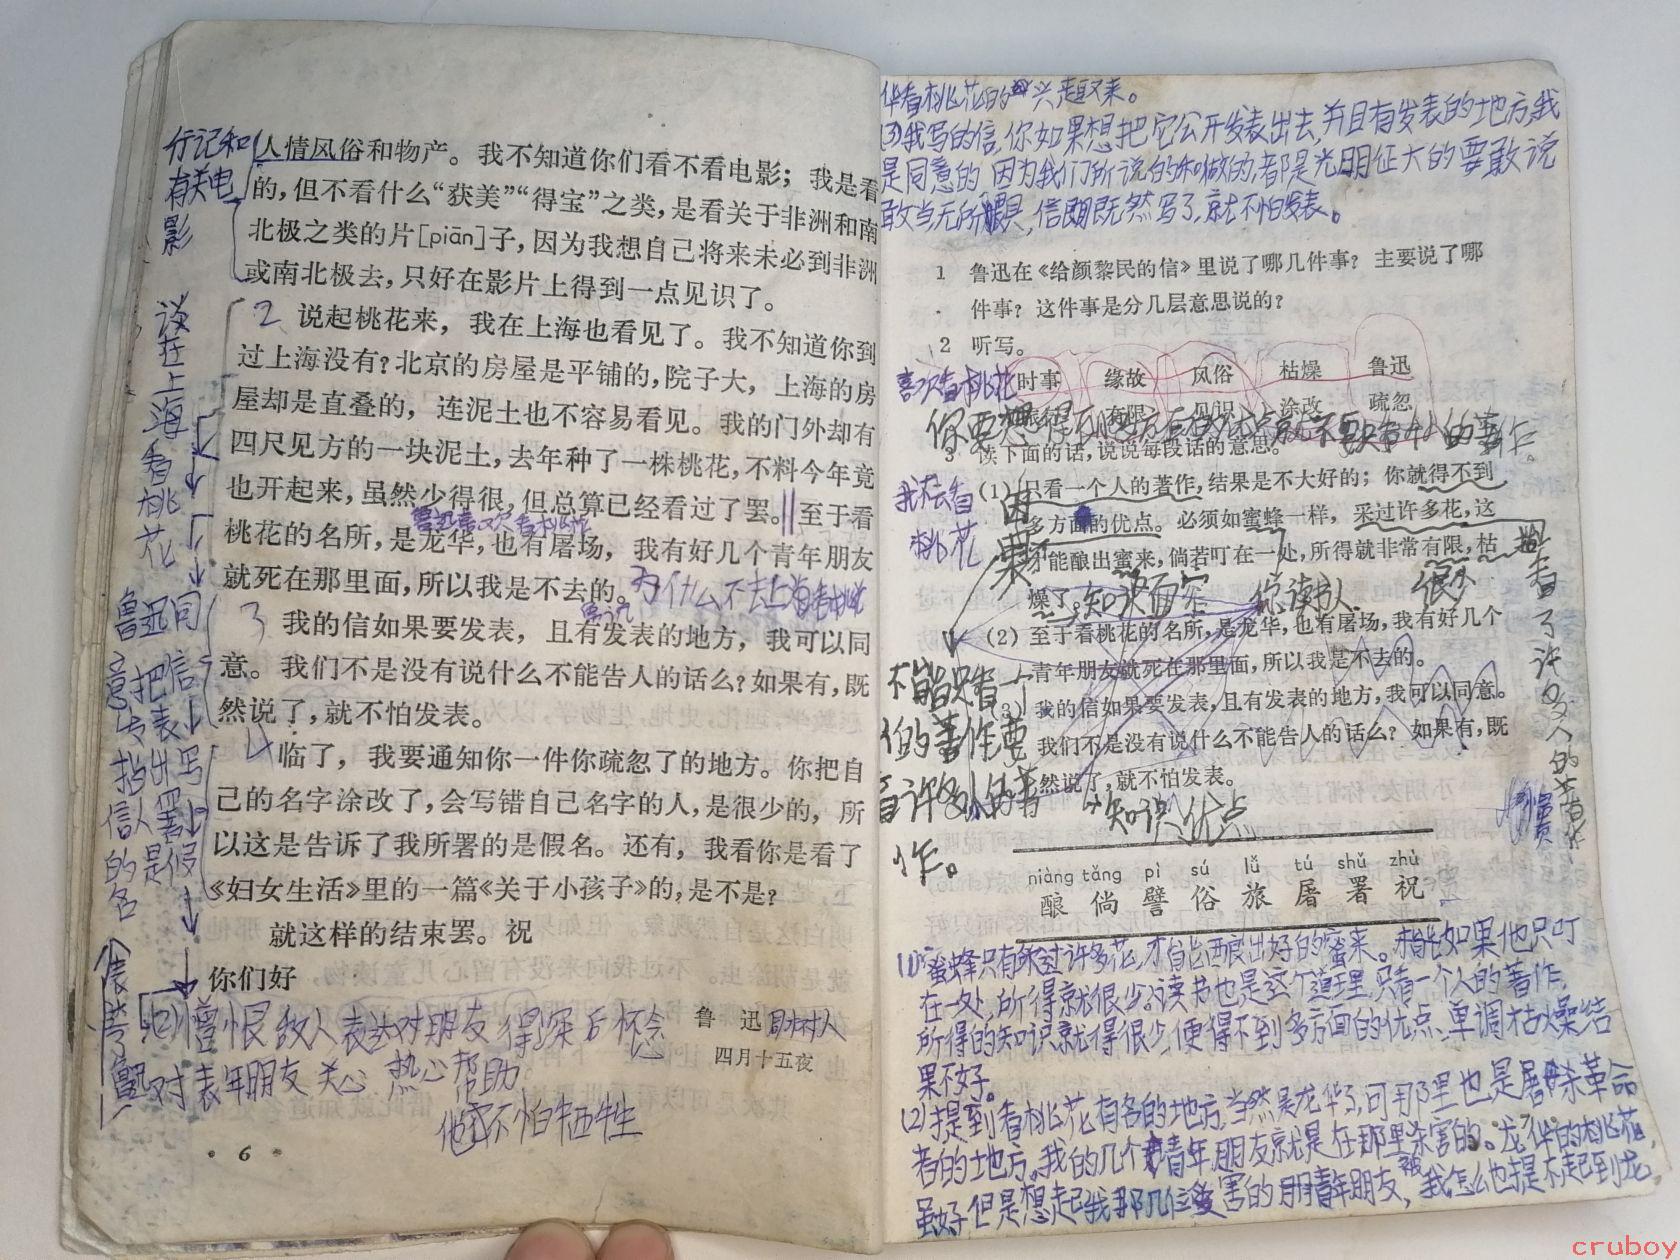 行记和
有关电
影
人情风俗和物产。我不知道你们看不看电影；我是看
的，但不看什么“获美”“得宝”之类，是看关于非洲和南
北极之类的片[piān]子，因为我想自己将来未必到非洲
或南北极去，只好在影片上得到一点见识了。
谈在上海看桃花
2
说起桃花来，我在上海也看见了。我不知道你到
过上海没有？北京的房屋是平铺的，院子大，上海的房
屋却是直叠的，连泥土也不容易看见。我的门外却有
四尺见方的一块泥土，去年种了一株桃花，不料今年竟
也开起来，虽然少得很，但总算已经看过了罢。至于看
鲁迅喜欢看桃花
桃花的名所，是龙华，也有屠场，我有好几个青年朋友
就死在那里面，所以我是不去的。
为什么不去上海看桃花
鲁迅同
意把信
发表
3
我的信如果要发表，且有发表的地方，我可以同
意。我们不是没有说什么不能告人的话么？如果有，既
然说了，就不怕发表。
指出写
信人署
的是假
名
4
临了，我要通知你一件你疏忽了的地方。你把自
己的名字涂改了，会写错自己名字的人，是很少的，所
以这是告诉了我所署的是假名。还有，我看你是看了
《妇女生活》里的一篇《关于小孩子》的，是不是？
就这样的结束罢。祝
你们好
鲁 迅
周树人
四月十五夜
(2)憎恨敌人表达对朋友得深厚怀念
鲁迅对青年朋友关心 热心帮助
他不怕牺牲
6
华看桃花的兴趣来。
(3)我写的信，你如果想把它公开发表出去，并且有发表的地方，我
是同意的 因为我们所说的和做的，都是光明征大的要敢说
敢当无所惧，信既然写了，就不怕发表。
1 鲁迅在《给颜黎民的信》里说了哪几件事？主要说了哪
件事？这件事是分几层意思说的？
2 听写。
时事 缘故 风俗 枯燥 鲁迅
有限 见识 涂改 疏忽
喜欢看桃花
3 读下面的话，说说每段话的意思。
我不去看
桃花
(1) 只看一个人的著作，结果是不大好的；你就得不到
多方面的优点。必须如蜜蜂一样，采过许多花，这
才能酿出蜜来，倘若叮在一处，所得就非常有限，枯
燥了。
因
果
知识面窄
你读书
很少
(2) 至于看桃花的名所，是龙华，也有屠场，我有好几个
青年朋友就死在那里面，所以我是不去的。
(3) 我的信如果要发表，且有发表的地方，我可以同意。
我们不是没有说什么不能告人的话么？如果有，既
然说了，就不怕发表。
不能只看一个
人的著作要
看许多人的著
作。
知识优点
看了许多人的著作
niàng tǎng pì sú lǚ tú shǔ zhù
酿 倘 譬 俗 旅 屠 署 祝
(1)蜜蜂只有采过许多花，才能酿出好的蜜来。如果他只叮
在一处，所得就很少。读书也是这个道理，只看一个人的著作，
所得的知识就得很少，便得不到多方面的优点，单调枯燥结
果不好。
(2)提到看桃花有名的地方，当然是龙华了，可那里也是屠杀革命
者的土地方。我的几个青年朋友就是在那里杀害的。龙华的桃花
虽好但是想起我那几位被害的青年朋友，我怎么也提不起到龙
cruboy